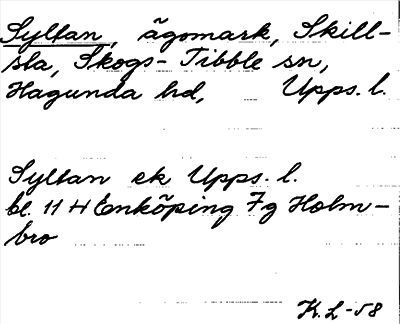 Syltan, ägomark, Skill-
sta, Skogs-Tibble sn,
Hagunda hd, Upps. l.
Syltan ek Upps. l.
bl. 11 H Enköping 7g Holm-
bro
K.L-58